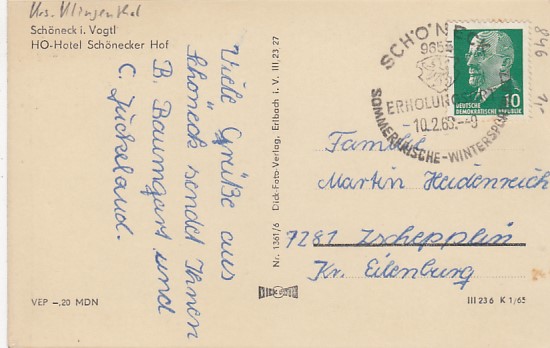 Krs. Klingenthal
Schöneck i. Vogtl
HO-Hotel Schönecker Hof
Viele Grüße aus
Schöneck sendet Ihnen
B. Baumgart und
C. Jückeland.
VEP –,20 MDN
Nr. 1361/6 Dick-Foto-Verlag, Erlbach i. V. III,23 27
DICK FOTO
SCHÖNECK
9655
ERHOLUNG
-10.2.66.-9
SOMMERFRISCHE-WINTERSPORT
DEUTSCHE
DEMOKRATISCHE REPUBLIK
10
846
Familie
Martin Heidenreich
7281 Zschepplin
Kr. Eilenburg
III 23 6 K 1/65